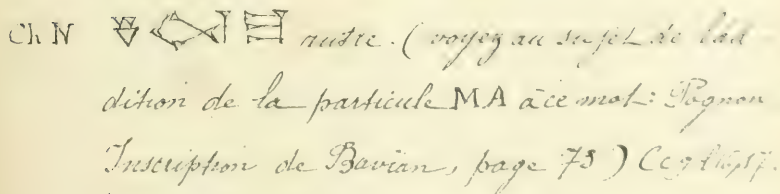 Ch N 𒃻𒉆𒈠 autre. ( voyez au sujet de l'ad
dition de la particule MA à ce mot: Pognon
Inscription de Bavian, page